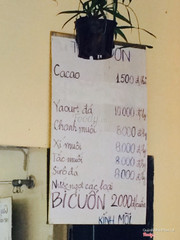 Cacao 1500
Yaourt đá 10.000 đ/ly
Chanh muối 8.000 đ/ly
Xí muối 8.000 đ/ly
Tắc muối 8.000 đ/ly
Sirô đá 8.000 đ/ly
Nước ngọt các loại
BÌ CUỐN 2000đ/cuốn
KÍNH MỜI